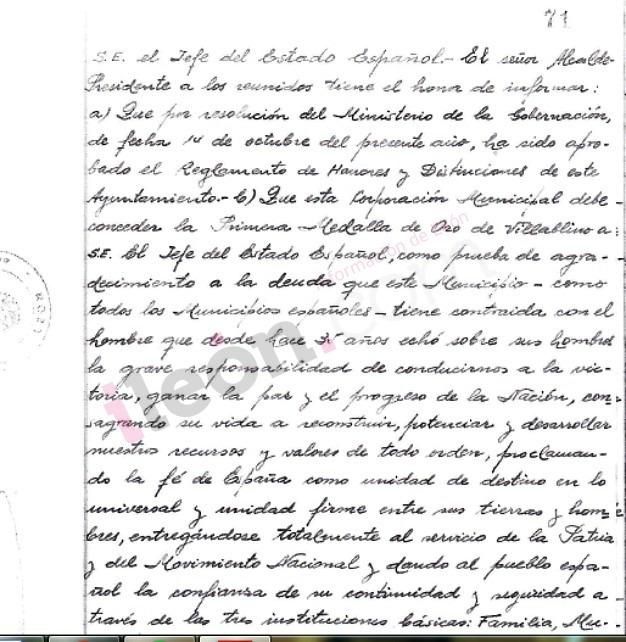 71
S.E. el Jefe del Estado Español.- El señor Alcalde-
Presidente a los reunidos tiene el honor de informar:
a) Que por resolución del Ministerio de la Gobernación,
de fecha 14 de octubre del presente año, ha sido apro-
bado el Reglamento de Honores y Distinciones de este
Ayuntamiento.- b) Que esta Corporación Municipal debe
conceder la Primera Medalla de Oro de Villablino a:
S.E. El Jefe del Estado Español, como prueba de agra-
decimiento a la deuda que este Municipio - como
todos los Municipios españoles - tiene contraida con el
hombre que desde hace 35 años echó sobre sus hombros
la grave responsabilidad de conducirnos a la vic-
toria, ganar la paz y el progreso de la Nación, con-
sagrando su vida a reconstruir, potenciar y desarrollar
nuestros recursos y valores de todo orden, proclaman-
do la fé de España como unidad de destino en lo
universal y unidad firme entre sus tierras y hom-
bres, entregándose totalmente al servicio de la Patria
y del Movimiento Nacional y dando al pueblo espa-
ñol la confianza de su continuidad y seguridad a
través de las tres instituciones básicas: Familia, Mu-
ileón.com
formación de León